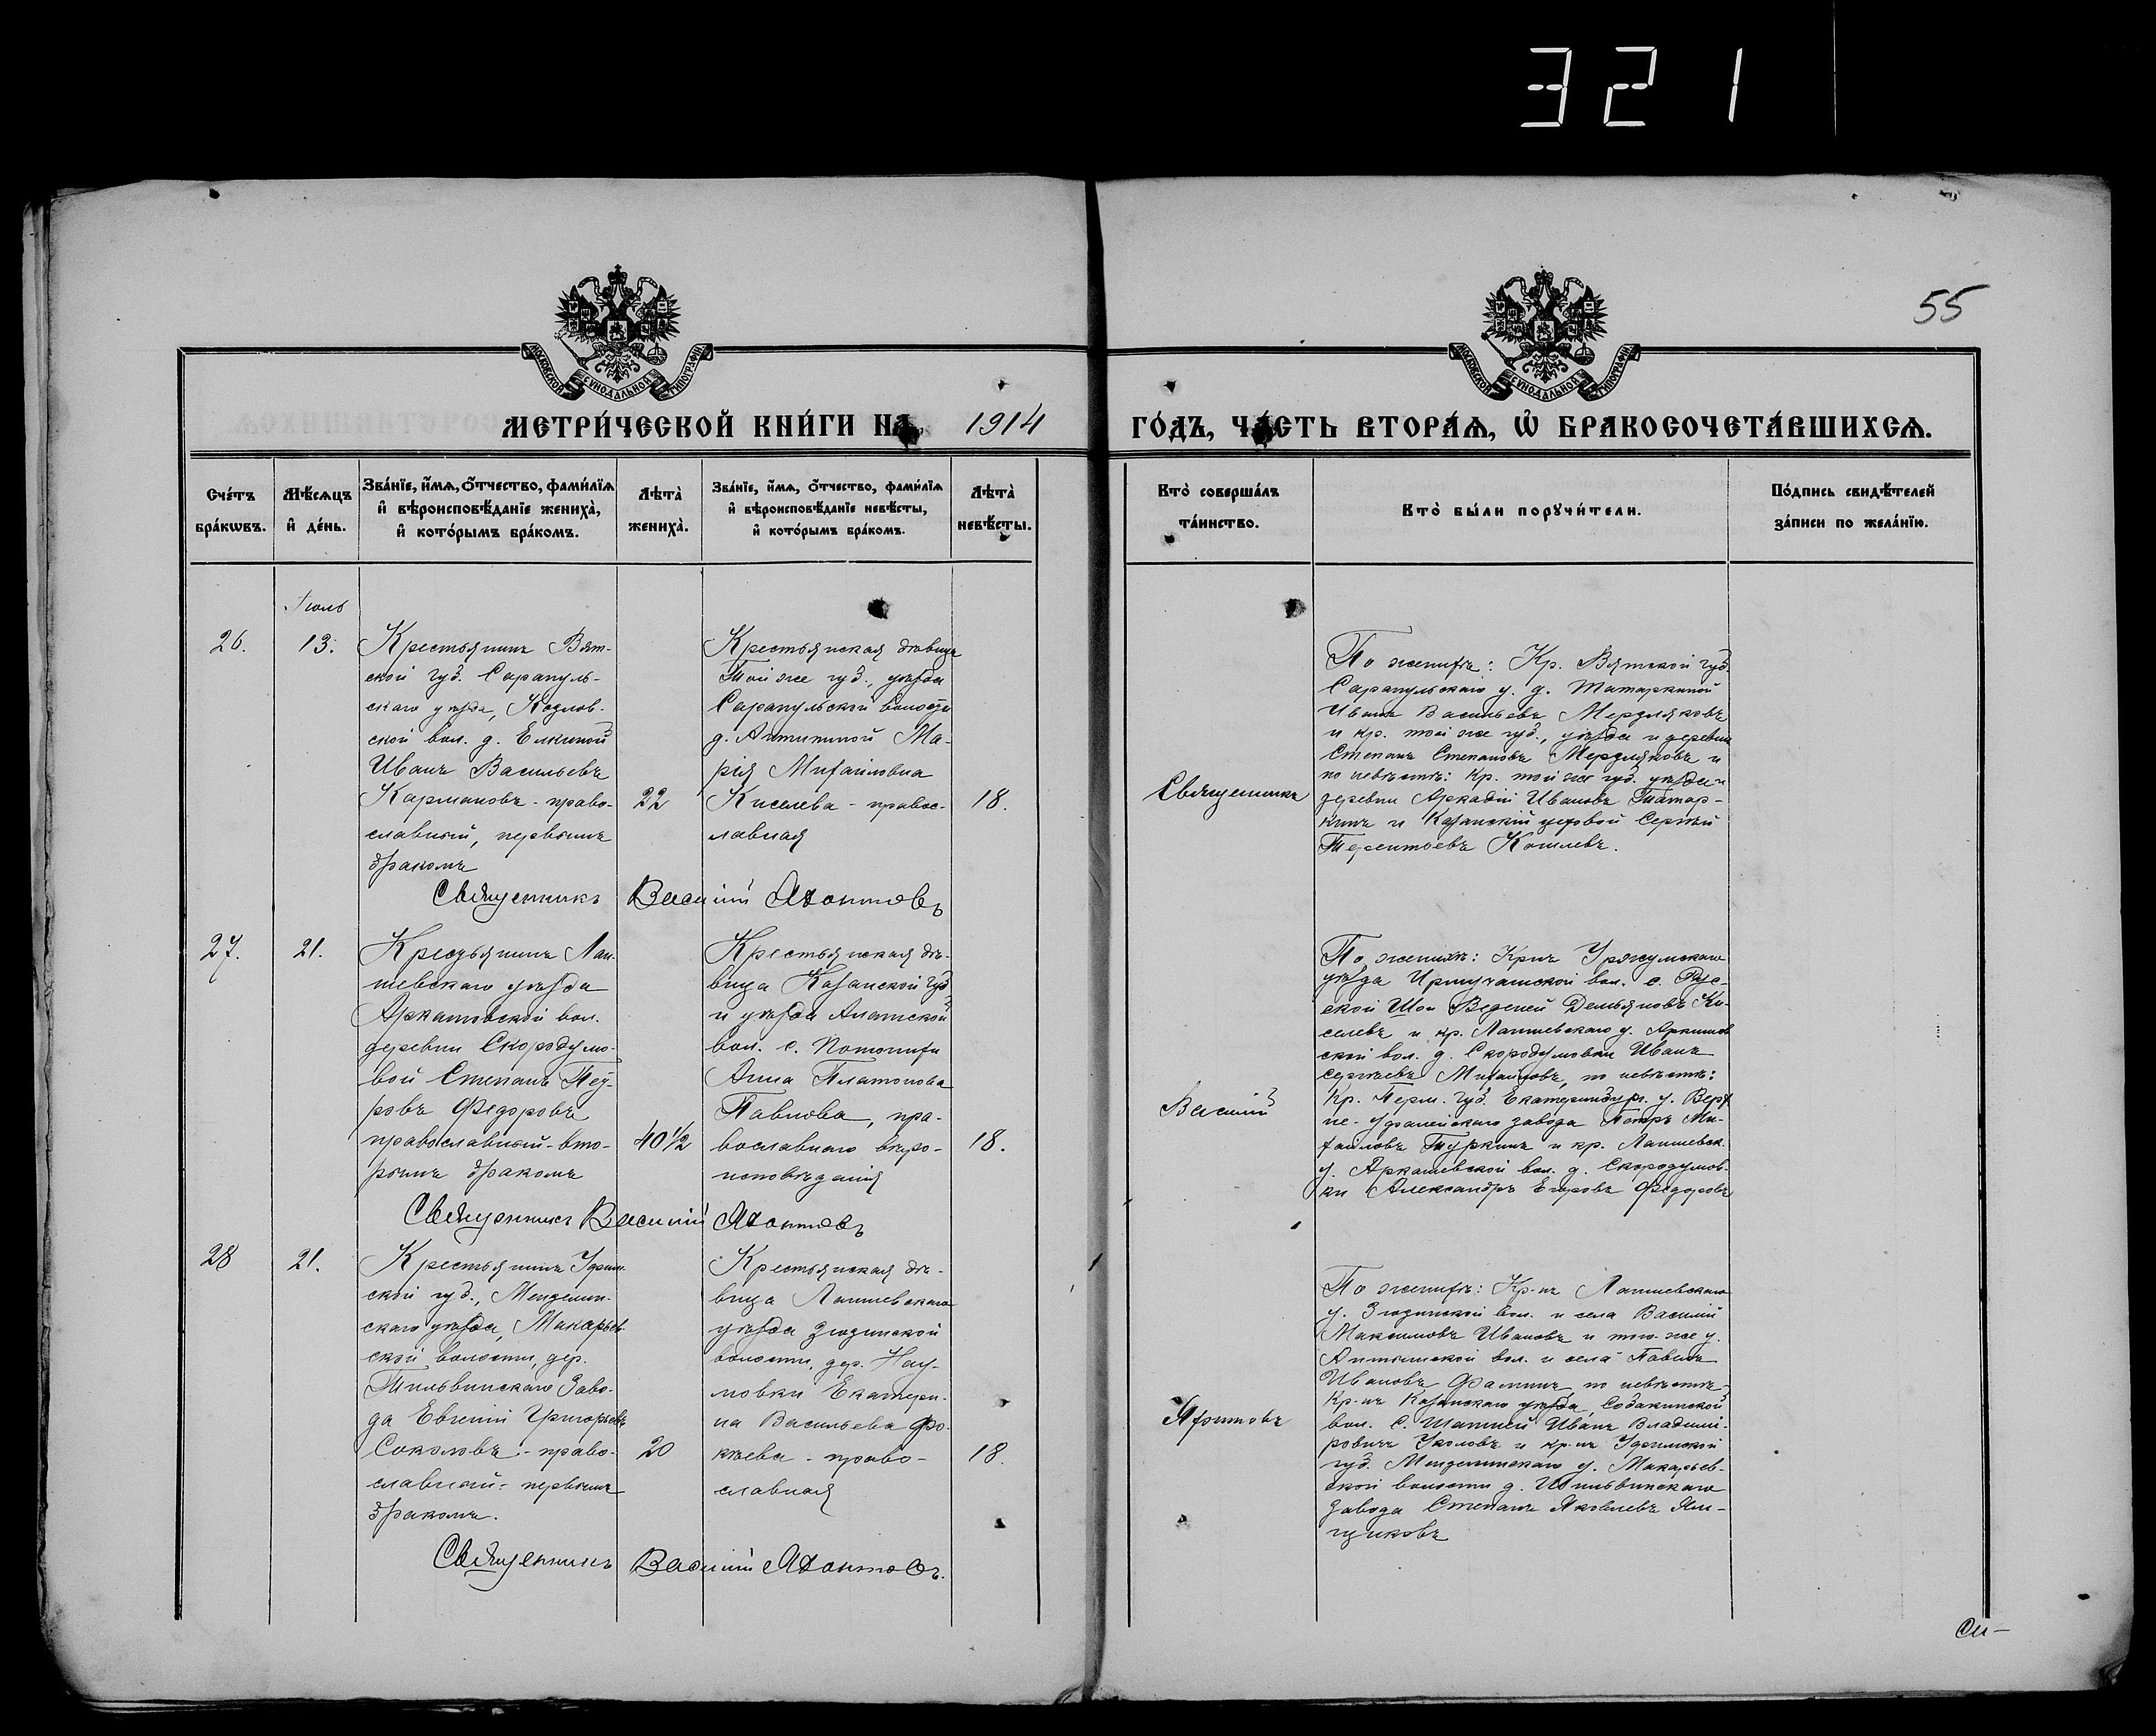 321
55
МОСКОВСКОЙ СУНОДАЛЬНОЙ ТИПОГРАФІИ
МОСКОВСКОЙ СУНОДАЛЬНОЙ ТИПОГРАФІИ
МЕТРИ́ЧЕСКОЙ КНИ́ГИ НА 1914 ГО́ДЪ, ЧА́СТЬ ВТОРА́Ѧ, Ѡ҆ БРАКОСОЧЕТА́ВШИХСѦ.
Сче́тъ бра́кѡвъ.
Мѣ́сѧцъ и҆ де́нь.
Зва́нїе, и҆́мѧ, ѻ҆́тчество, фами́лїѧ и҆ вѣроисповѣ́данїе жениха̀, и҆ кото́рымъ бра́комъ.
Лѣта̀ жениха̀.
Зва́нїе, и҆́мѧ, ѻ҆́тчество, фами́лїѧ и҆ вѣроисповѣ́данїе невѣ́сты, и҆ кото́рымъ бра́комъ.
Лѣта̀ невѣ́сты.
Кто̀ соверша́лъ та́инство.
Кто̀ бы́ли порꙋчи́тели.
По́дпись свидѣ́телей за́писи по жела́нїю.
Іюль
26.
13.
Крестьянинъ Вят-
ской губ. Сарапуль-
скаго уѣзда, Козлов-
ской вол. д. Елкиной
Иванъ Васильевъ
Кармановъ - право-
славный, первымъ
бракомъ
22
Крестьянская дѣвица
Той же губ., уѣзда
Сарапульской волости
д. Антипиной Ма-
рія Михаиловна
Киселева - правос-
лавная
18.
Священникъ
По женихѣ: Кр. Вятской губ.
Сарапульскаго у. д. Татаркиной
Иванъ Васильевъ Мерзляковъ
и кр. той же губ., уѣзда и деревни
Степанъ Степановъ Мерзляковъ и
по невѣстѣ: Кр. той же губ. уѣзда и
деревни Аркадій Ивановъ Татар-
кинъ и Казанскій цеховой Сергѣй
Терентьевъ Кошлевъ.
Священникъ Василій Яхонтовъ
27.
21.
Крестьянинъ Лаи-
шевскаго уѣзда
Аркатовской вол.
деревни Скородумо-
вой Степанъ Пет-
ровъ Федоровъ
православный - вто-
рымъ бракомъ
40½
Крестьянская дѣ-
вица Казанской губ.
и уѣзда Алатской
вол. с.
Анна Платонова
Павлова, пра-
вославнаго вѣро-
исповѣданія
18.
Василій
По женихѣ: Кр-нъ Уржумскаго
уѣзда вол. с. Рус-
ской Шои Веденей Демьяновъ Ки-
селевъ и кр. Лаишевскаго у. Аркатов
ской вол. д. Скородумовки Иванъ
Сергѣевъ Михайловъ, по невѣстѣ:
Кр. Перм. губ. Екатеринбург. у. Верх
не-Уфалейскаго завода Петръ Ми-
хаиловъ Туркинъ и кр. Лаишевск.
у. вол. д. Скородумов-
ки Александръ Егоровъ Федоровъ
Священникъ Василій Яхонтовъ
28
21.
Крестьянинъ Уфим-
ской губ., Мензелин-
скаго уѣзда, Макарьев-
ской волости, дер.
Заво-
да Евгеній Григорьевъ
Соколовъ - право-
славный - первымъ
бракомъ.
20
Крестьянская дѣ-
вица Лаишевскаго
уѣзда Зюзинской
волости, дер. Нау-
мовки Екатери-
на Васильева Фо-
кѣева - право-
славная
18.
Яхонтовъ
По женихѣ: Кр-нъ Лаишевскаго
у. Зюзинской вол. и села Василій
Максимовъ Ивановъ и того-же у.
вол. и села Павелъ
Ивановъ Фаминъ по невѣстѣ -
Кр-нъ Казанскаго уѣзда, Собакинской
вол. с. Иванъ Владими-
ровичъ и кр-нъ Уфимской
губ. Мензелинскаго у. Макарьев-
ской волости д.
завода Степанъ Яковлевъ Ям-
щиковъ
Священникъ Василій Яхонтовъ.